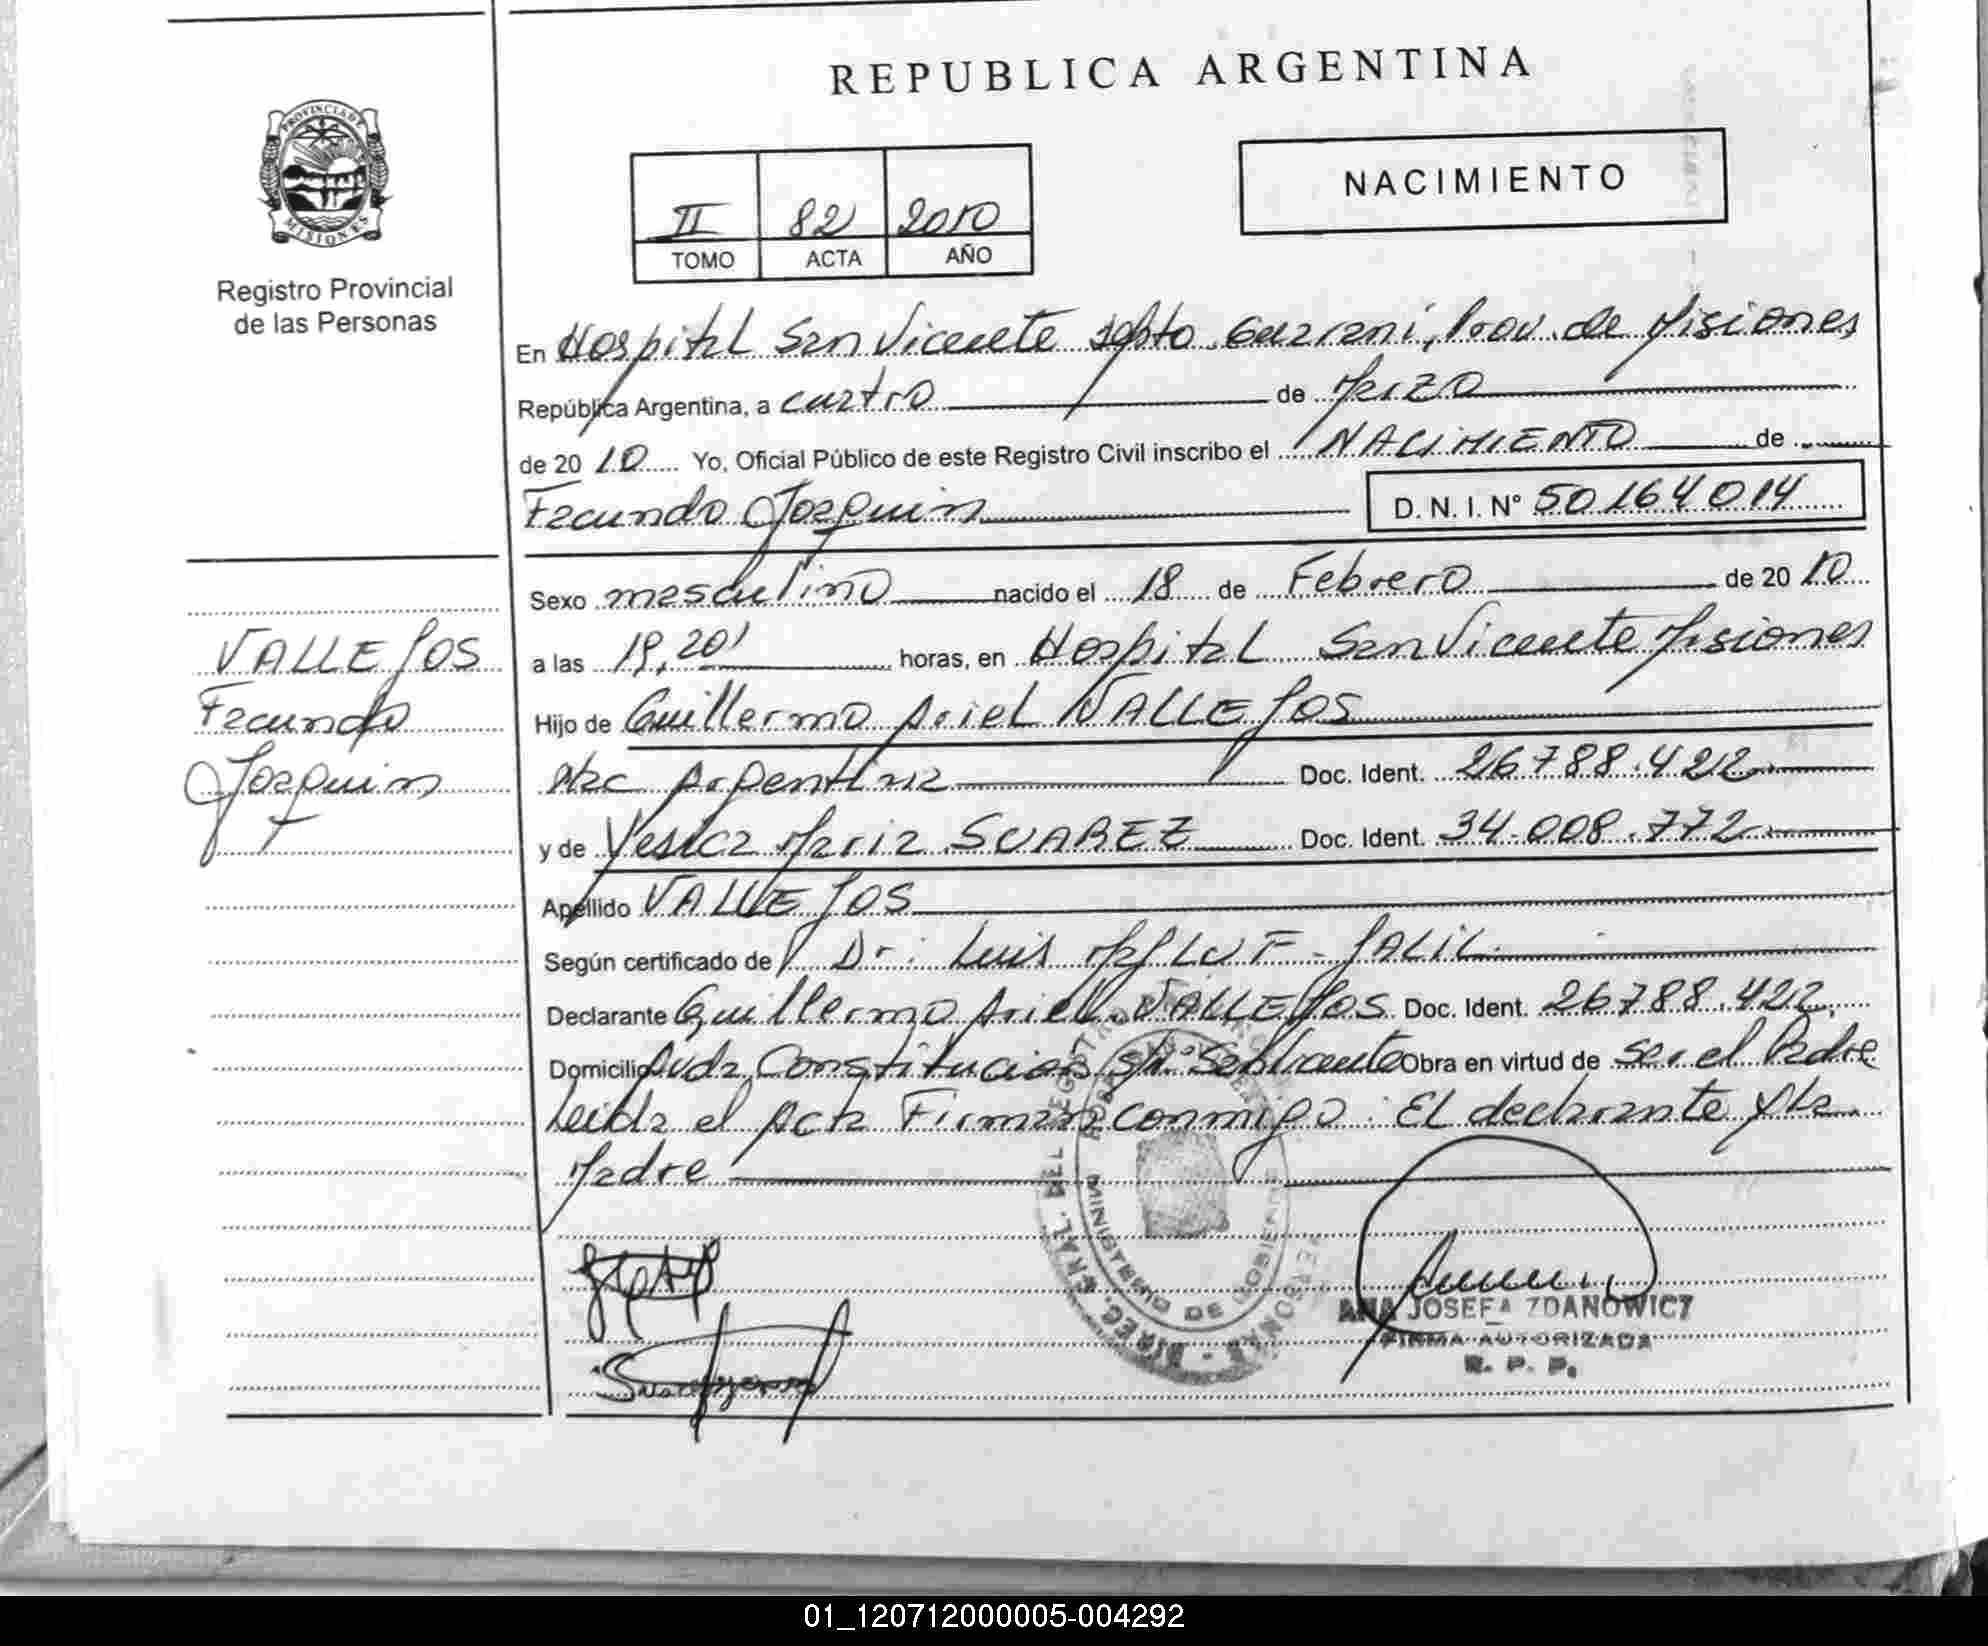 REPUBLICA ARGENTINA
PROVINCIA DE
MISIONES
Registro Provincial
de las Personas
II 82 2010
TOMO ACTA AÑO
NACIMIENTO
En Hospital San Vicente Dpto. Guarani, Prov. de Misiones
República Argentina, a cuatro de Marzo
de 20 10 Yo, Oficial Público de este Registro Civil inscribo el NACIMIENTO de
Facundo Joaquin D. N. I. N° 50164014
Sexo masculino nacido el 18 de Febrero de 20 10
a las 19,20' horas, en Hospital San Vicente Misiones
Hijo de Guillermo Ariel VALLEJOS
Nac Argentina Doc. Ident. 26788.422
y de Yesica Maria SUAREZ Doc. Ident. 34.008.772
Apellido VALLEJOS
Según certificado de Dr: Luis JALIL
Declarante Guillermo Ariel VALLEJOS Doc. Ident. 26788.422
Domicilio Avda Constitucion S/n° San Vicente Obra en virtud de ser el Padre
Leida el Acta Firman conmigo: El declarante y la
Madre
VALLEJOS
Facundo
Joaquin
MINISTERIO DE GOBIERNO
ANA JOSEFA ZDANOWICZ
FIRMA AUTORIZADA
R. P. P.
01_120712000005-004292